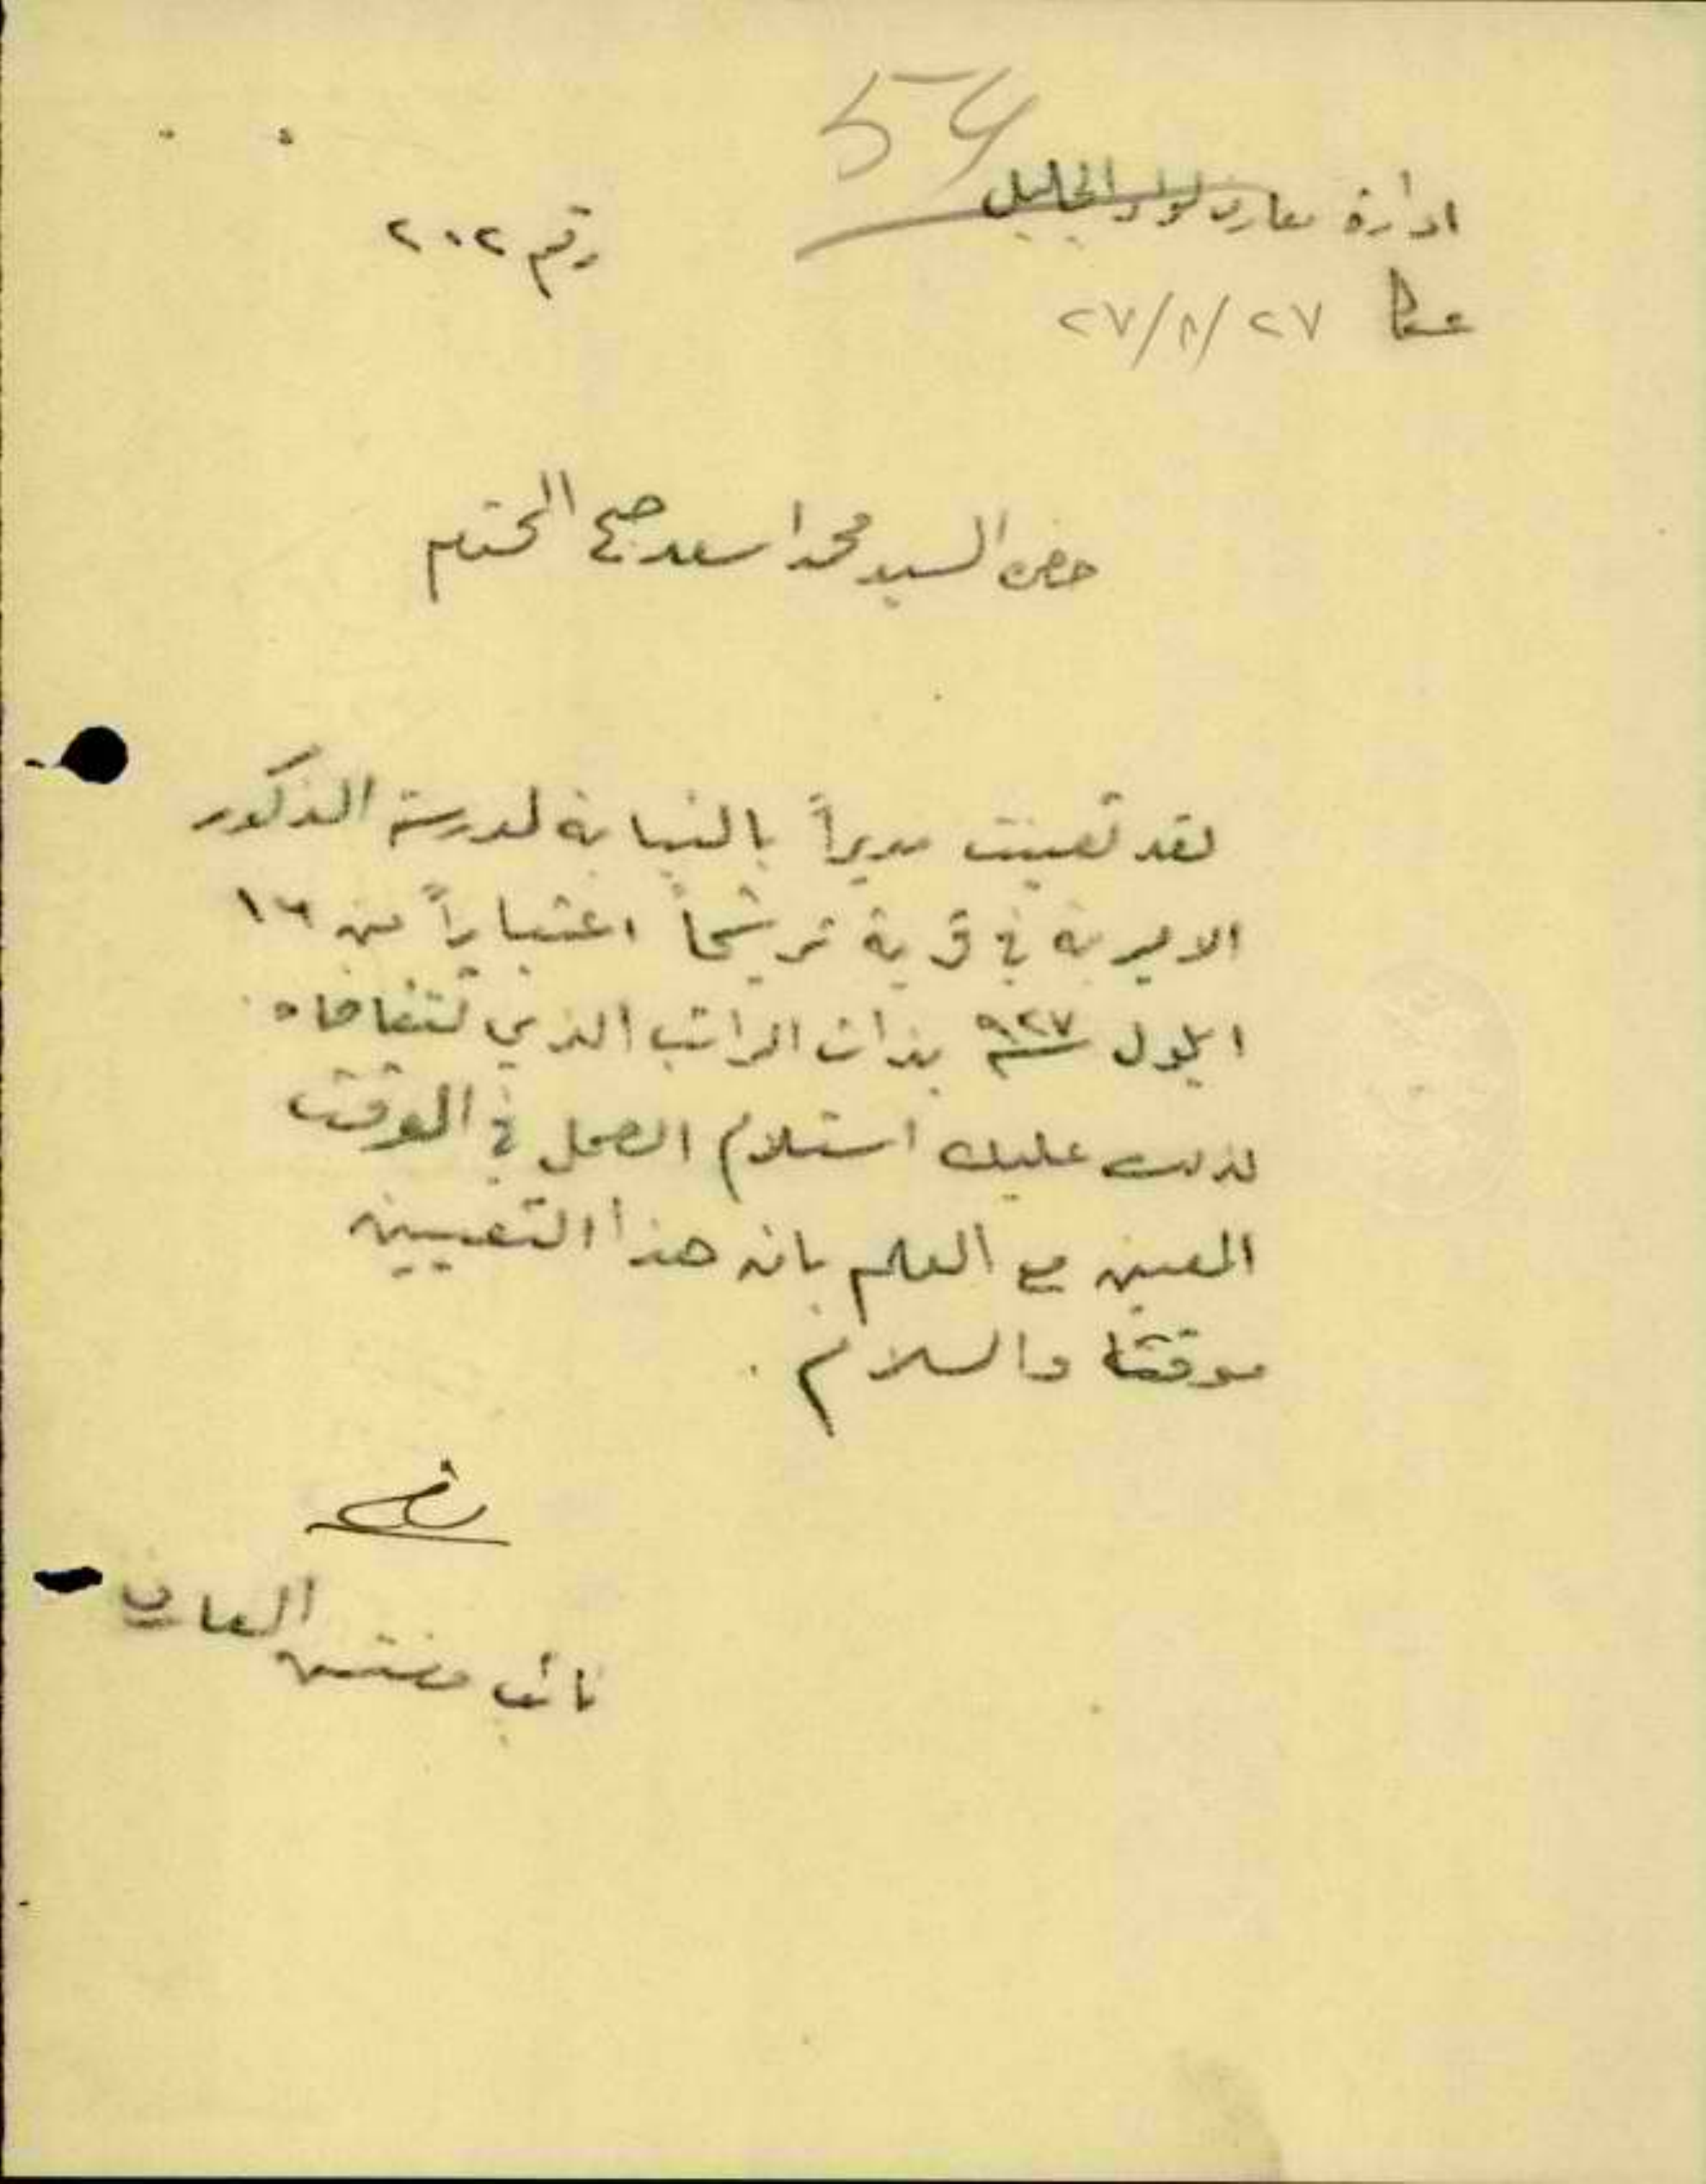 54
ادارة معارف لواء الجليل
رقم ٢٠٢
عكا ٢٧/٨/٢٧
حضرة السيد محمد اسعد صبح المحترم
لقد تعينت مديراً بالنيابة لمدرسة الذكور
الاميرية في قرية ترشيحا اعتباراً من ١٦
ايلول ٩٢٧ بذات الراتب الذي تتقاضاه
لذلك عليك استلام العمل في الوقت
المعين مع العلم بان هذا التعيين
موقتا والسلام .
نائب مفتش المعارف